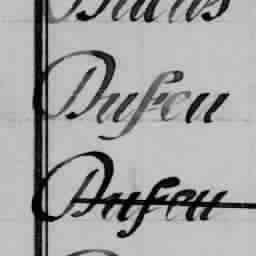 Dufeu
Dufeu